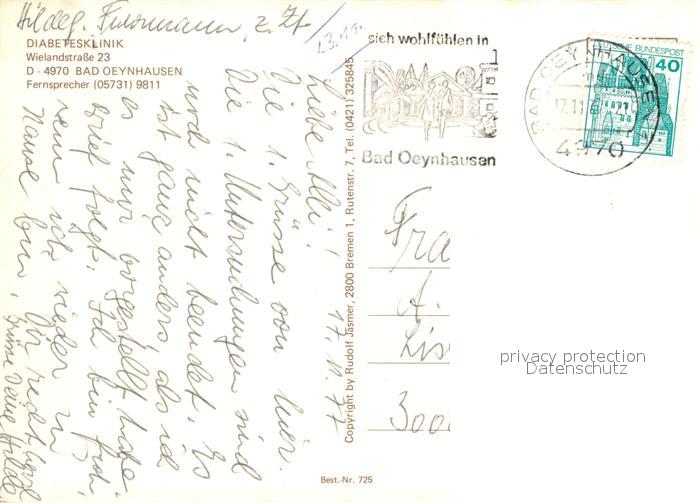 Hildeg. Fuhrmann, z. Zt.
DIABETESKLINIK
Wielandstraße 23
D - 4970 BAD OEYNHAUSEN
Fernsprecher (05731) 9811
17.11.77
Liebe Alli!
Die 1. Grüsse von hier.
Die 1. Untersuchungen sind
noch nicht beendet. Es
ist ganz anders, als ich
es mir vorgestellt habe.
Brief folgt. Ich bin froh,
wenn ich wieder zu
Hause bin. Dir recht herzl.
Grüsse Deine Hilde
Copyright by Rudolf Jasmer, 2800 Bremen 1, Rutenstr. 7, Tel. (0421) 325845
Best.-Nr. 725
sich wohlfühlen in
Bad Oeynhausen
BAD OEYNHAUSEN
17.11
4970
DEUTSCHE BUNDESPOST
40
Fra
A.
Lis
3000
privacy protection
Datenschutz